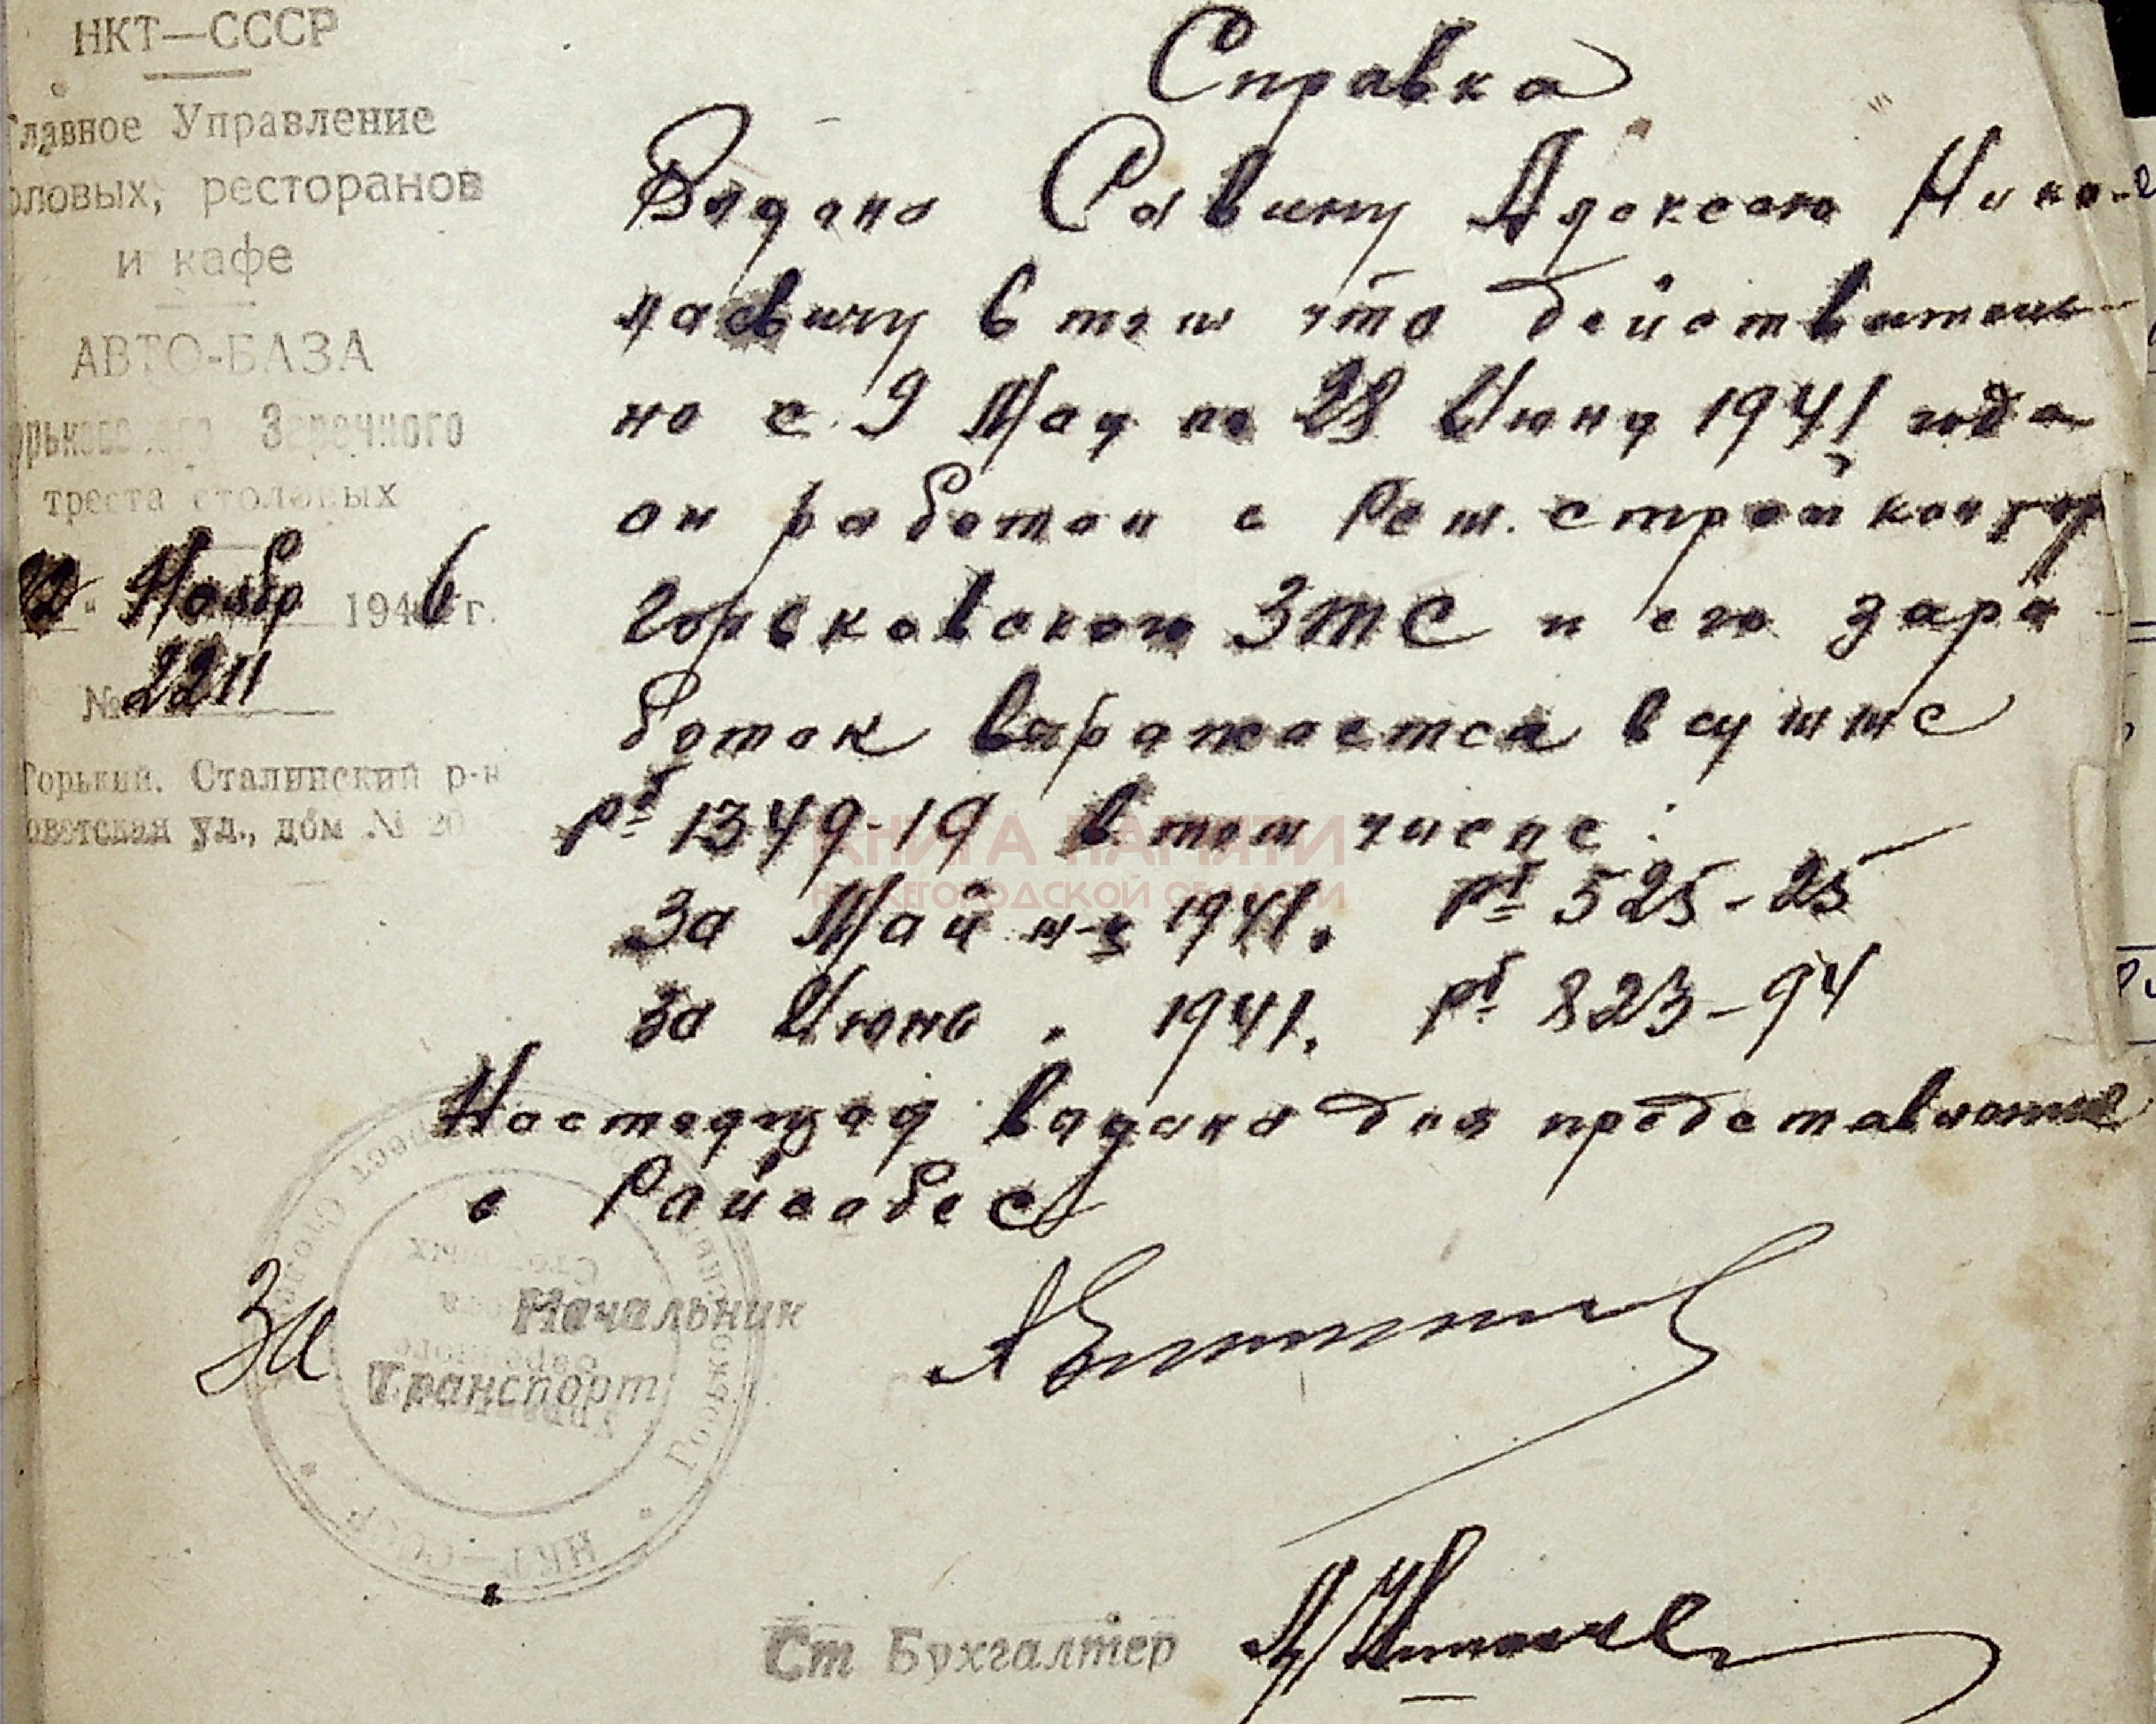 НКТ—СССР
Главное Управление
оловых, ресторанов
и кафе
АВТО-БАЗА
орьковского Заречного
треста столовых
Ноябр 1946 г.
№ 2211
Горький. Сталинский р-н
оветская ул., дом № 20
Справка
Выдана Савину Алексею Нико-
лаевичу в том что действитель-
но с 9 Мая по 28 Июня 1941 года
он работал в Рем. стройконтор
Горьковского ЗТС и его зара-
боток выражается в сумме
рб 1349-19 в том числе:
За Май м-ц 1941. рб 525-25
За Июнь " 1941. рб 823-94
Настоящая выдана для представления
в Райсобес
КНИГА ПАМЯТИ
НИЖЕГОРОДСКОЙ ОБЛАСТИ
За Начальник
Транспорт
НКТ—СССР
Ст Бухгалтер